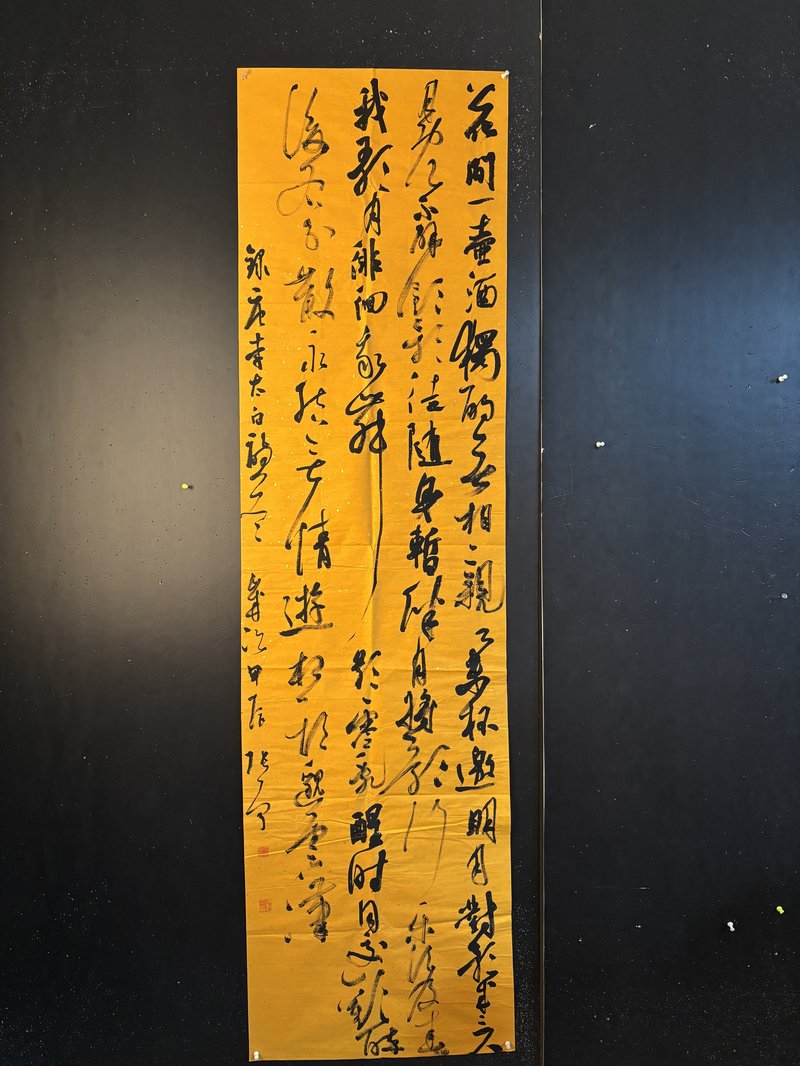 花間一壺酒獨酌無相親舉杯邀明月對影成三人
月既不解飲影徒隨身暫伴月將影行樂須及春
我歌月徘徊我舞影零亂醒時同交歡醉
後各分散永結無情遊相期邈雲漢
錄唐李太白詩 歲次甲辰